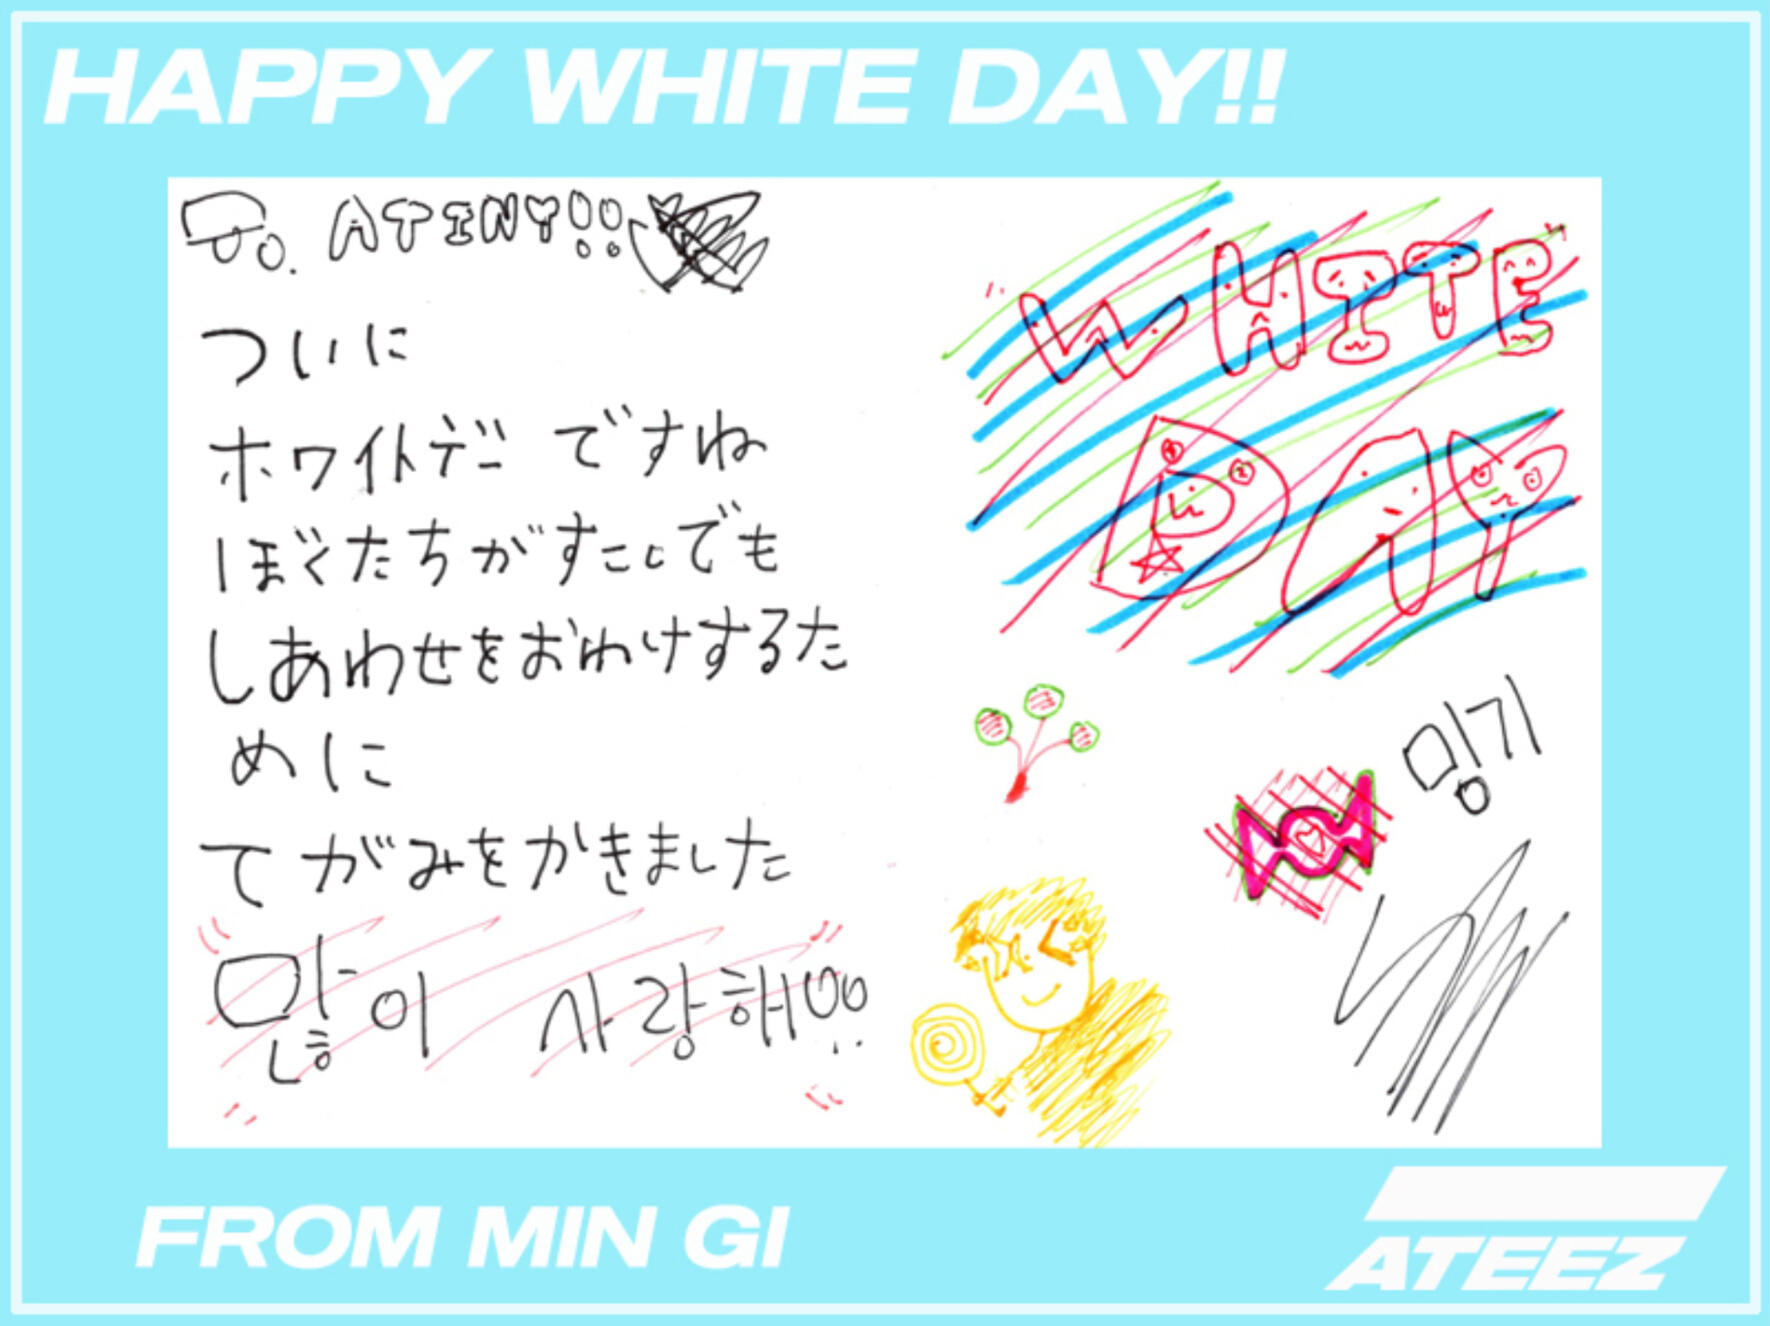 HAPPY WHITE DAY!!
To. ATINY!!
ついに
ホワイトデーですね
ぼくたちがすこしでも
しあわせをおわけするた
めに
てがみをかきました
많이 사랑해!!
WHITE
DAY
민기
FROM MIN GI
ATEEZ